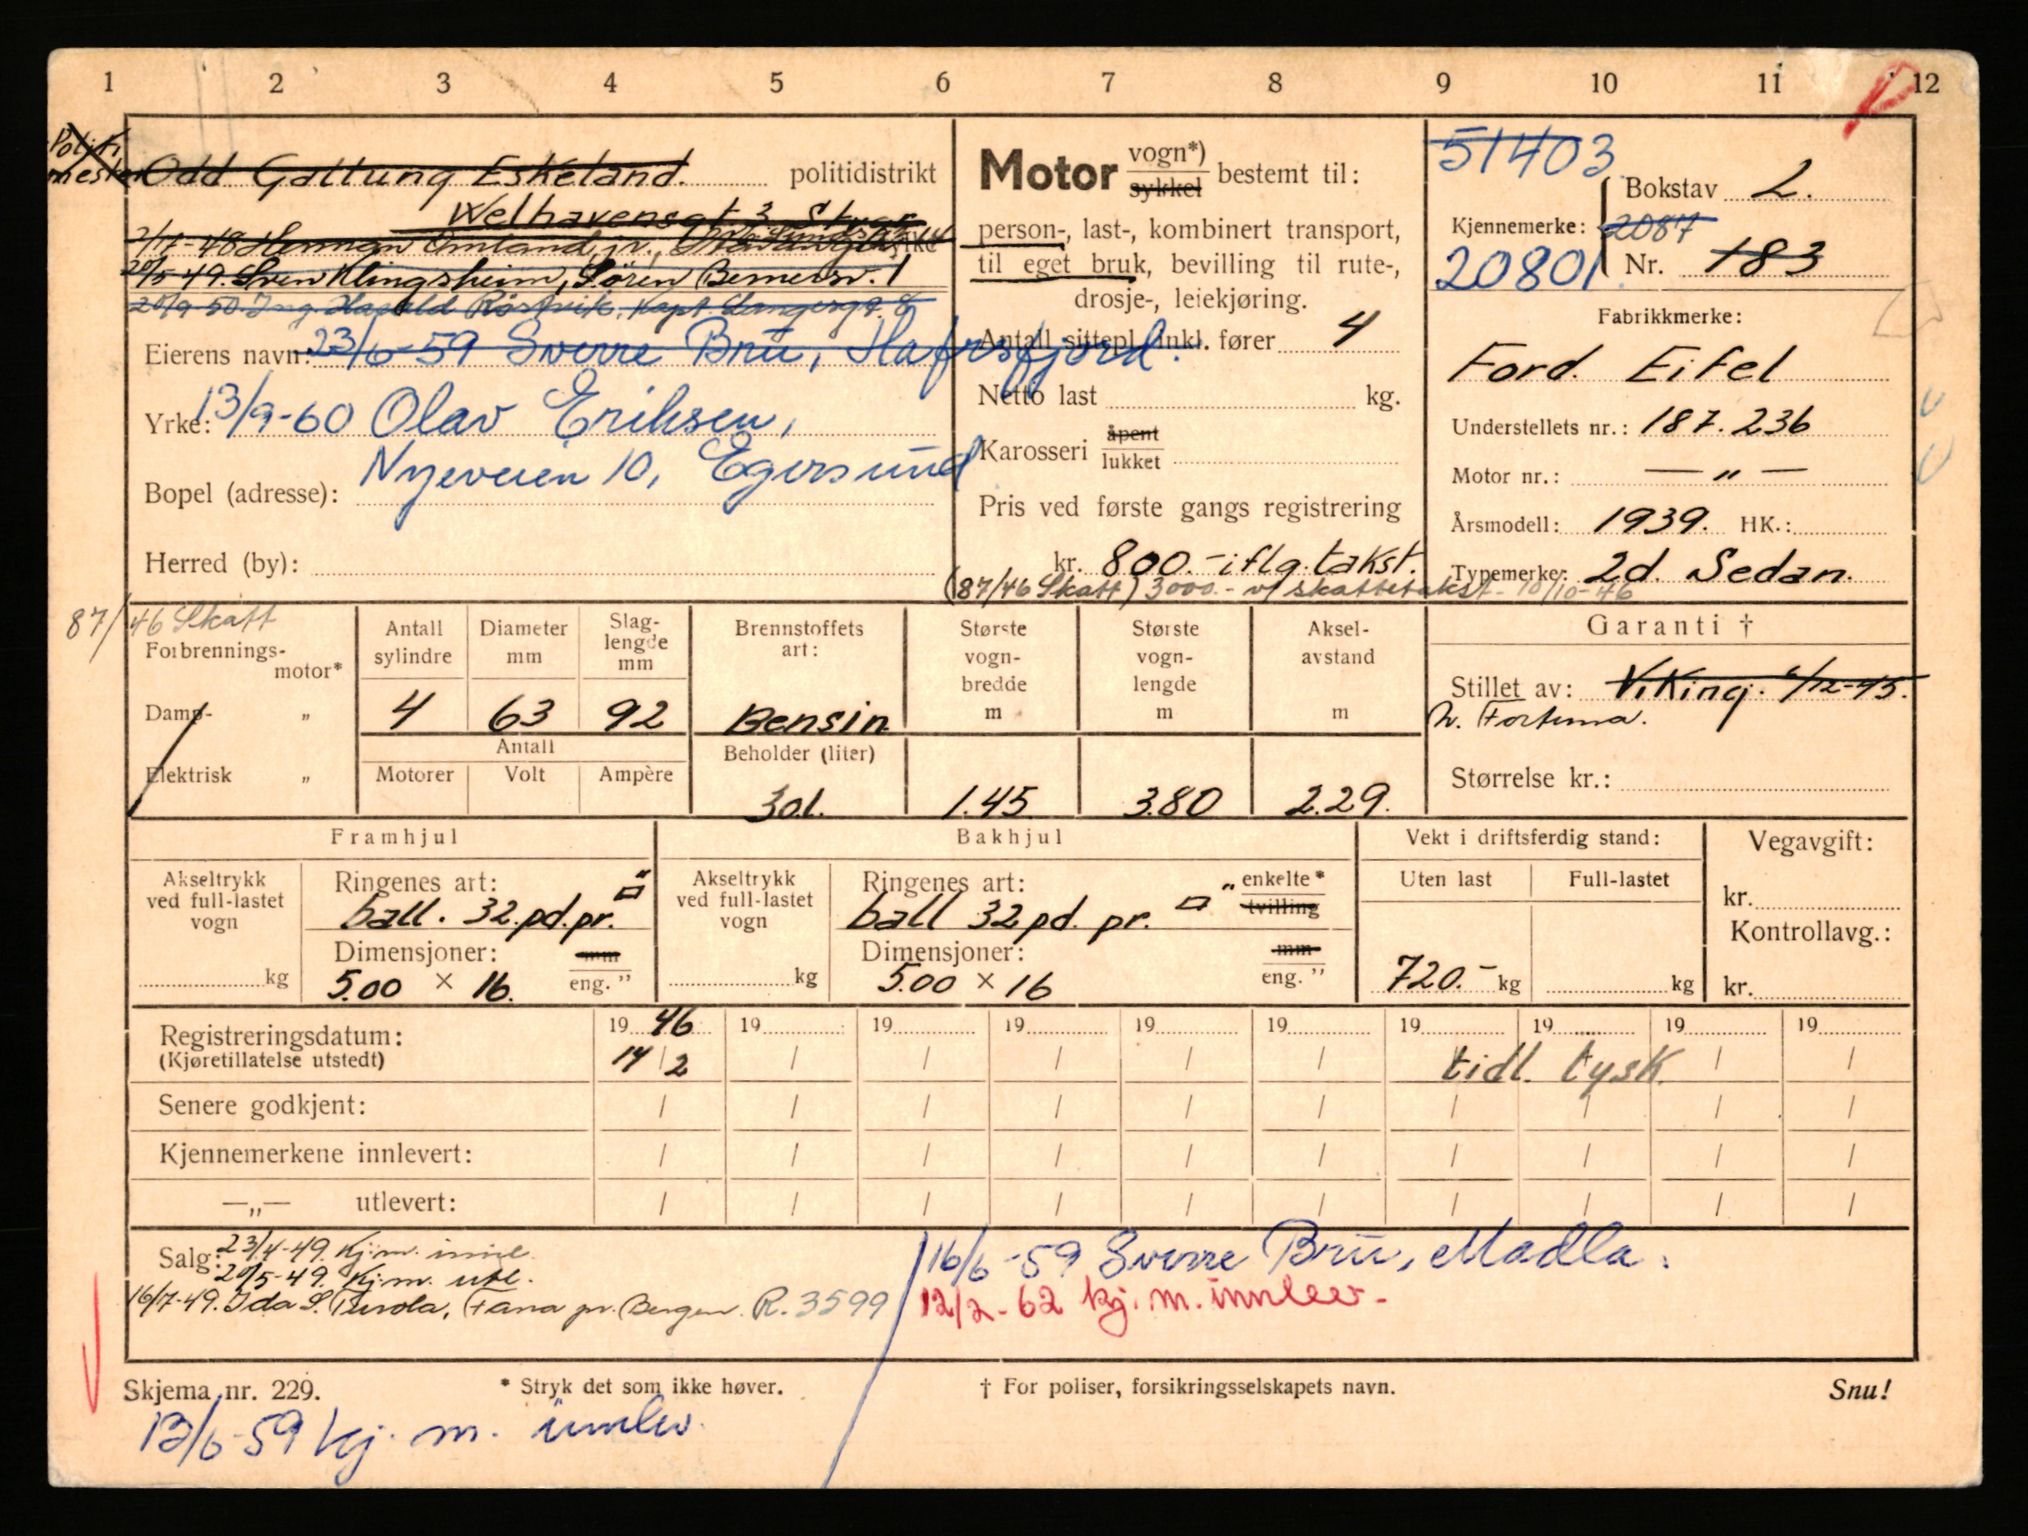 1 2 3 4 5 6 7 8 9 10 11 12
Politi
mester Odd Gattung Eskeland. politidistrikt
Welhavensgt. 3
2/7-48 Henman Omland jr.,
20/5-49. Sven Klingsheim, Sören Bernersv. 1
20/9-50. Ing. Harald Röstvik, Kapt. Langesgt. 8
Eierens navn: 23/6-59 Sverre Bru, Hafrsfjord.
Yrke: 13/9-60 Olav Eriksen,
Nyeveien 10, Egersund
Bopel (adresse):
Herred (by):
Motor vogn*) sykkel bestemt til:
person-, last-, kombinert transport,
til eget bruk, bevilling til rute-,
drosje-, leiekjøring.
Antall sittepl. inkl. fører 4
Netto last kg.
Karosseri åpent lukket
Pris ved første gangs registrering
kr. 800.- iflg. takst.
(87/46 Skatt) 3000.- v/ skattetakst 10/10-46
51403
Bokstav L.
Kjennemerke: 2087
20801 Nr. 183
Fabrikkmerke:
Ford Eifel
Understellets nr.: 187.236
Motor nr.: — „ —
Årsmodell: 1939. HK.:
Typemerke: 2d. Sedan.
87/46 Skatt
Forbrennings-
motor*
Damp- „
Elektrisk „
Antall sylindre 4
Diameter mm 63
Slag-lengde mm 92
Antall
Motorer Volt Ampère
Brennstoffets art: Bensin
Beholder (liter) 30 l.
Største vogn-bredde m 1.45
Største vogn-lengde m 3.80
Aksel-avstand m 2.29.
Garanti †
Stillet av: Viking. 6/12-45.
N. Fortuna.
Størrelse kr.:
Framhjul
Akseltrykk ved full-lastet vogn kg
Ringenes art: "
ball. 32. pd. pr. □
Dimensjoner: mm
5.00 × 16. eng. ”
Bakhjul
Akseltrykk ved full-lastet vogn kg
Ringenes art: enkelte*
ball 32 pd. pr. □ " tvilling
Dimensjoner: mm
5.00 × 16 eng. ”
Vekt i driftsferdig stand:
Uten last Full-lastet
720.- kg kg
Vegavgift:
kr.
Kontrollavg.:
kr.
Registreringsdatum: 19 46 19 19 19 19 19 19 19 19 19
(Kjøretillatelse utstedt) 14/2 / / / / / tidl. tysk. / /
Senere godkjent: / / / / / / / / / /
Kjennemerkene innlevert: / / / / / / / / / /
—„— utlevert: / / / / / / / / / /
Salg: 23/4-49. Kj.m. innl.
20/5-49. Kj.m. utl.
16/7-49. Ida S. Fana pr. Bergen. R. 3599
16/6-59 Sverre Bru, Madla.
12/2-62 kj. m. innlev-
Skjema nr. 229. * Stryk det som ikke høver. † For poliser, forsikringsselskapets navn. Snu!
13/6-59 kj. m. innlev.